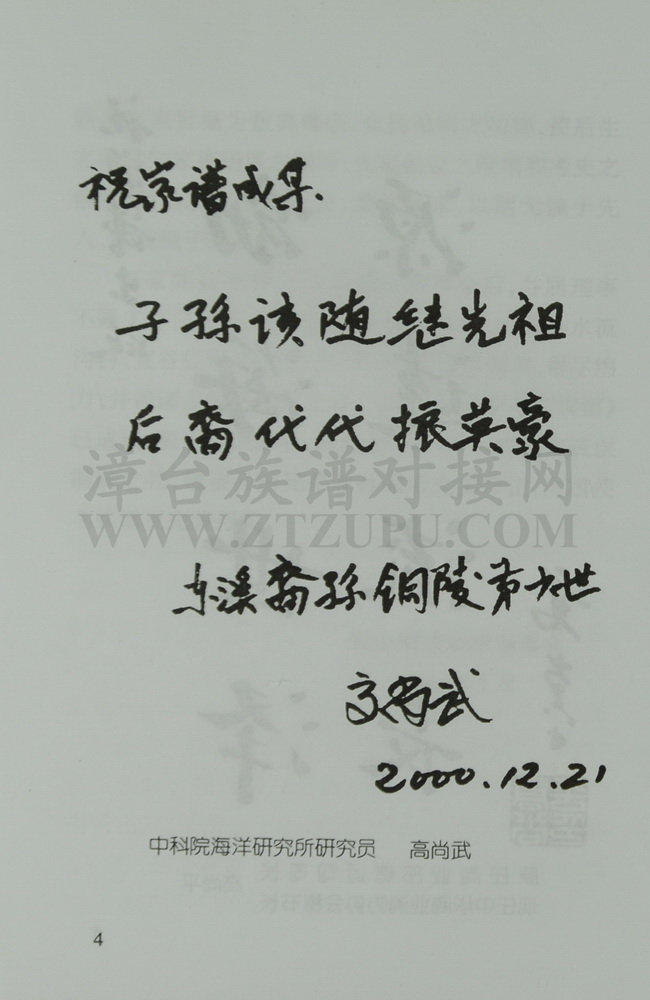 祝家谱成集.
子孙该随继先祖
后裔代代振英豪
漳台族谱对接网
WWW.ZTZUPU.COM
东溪裔孙铜陵第 世
高尚武
2000.12.21
中科院海洋研究所研究员 高尚武
4